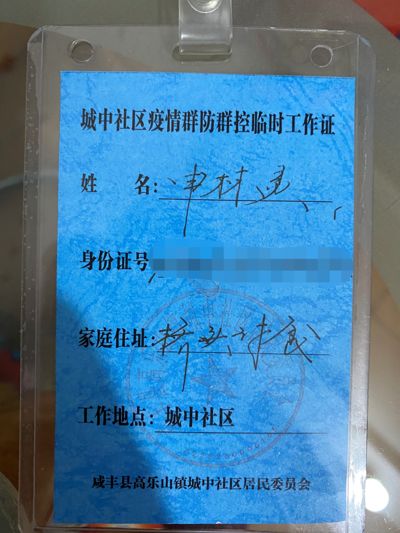 城中社区疫情群防群控临时工作证
姓 名:
身份证号
家庭住址:
工作地点: 城中社区
咸丰县高乐山镇城中社区居民委员会